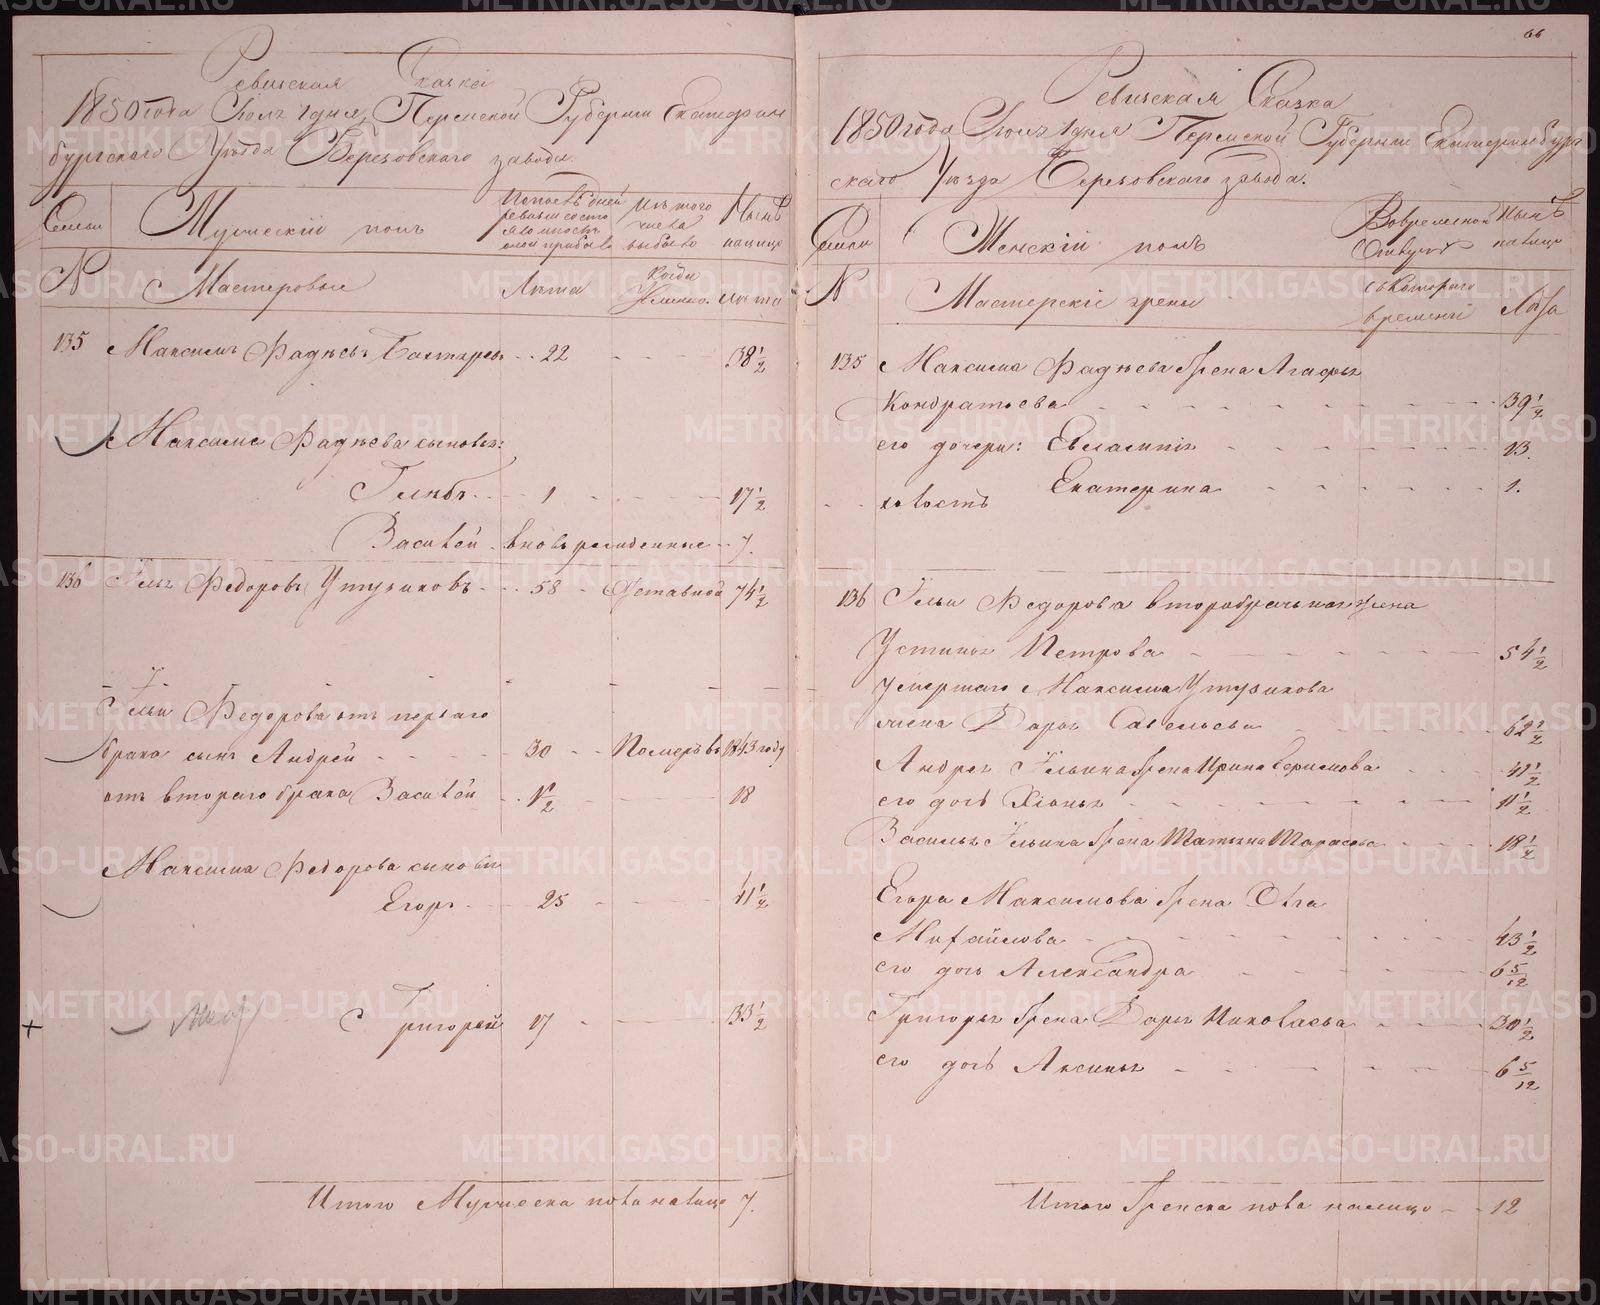 Ревизская Сказка
1850 года Июля 1 дня, Пермской Губернии Екатерин
бургского Уезда Березовского завода.
Семьи
Мужеский полъ
По последней
ревизии состо
яло и после
оной прибыло
Изъ того
числа
выбыло
Ныне
налицо
№
Мастеровые
Лета
Когда
именно
Лета
135 Максимъ Фадеевъ 22 38 1/2
Максима Фадеева сыновья:
Глебъ 1 17 1/2
Василей вновь рожденные 7.
136 Илья Федоровъ Утузиковъ 58 Отставной 74 1/2
Ильи Федорова отъ перваго
брака сынъ Андрей 30 Померъ въ 1843 году
отъ втораго брака Василей 1 1/2 18
Максима Федорова сыновья
Егоръ 25 41 1/2
Григорей 17 33 1/2
Итого Мужеска пола налицо 7.
66
Ревизская Сказка
1850 года Июля 1 дня Пермской Губернии Екатеринбург
скаго Уезда Березовского завода.
Семьи
Женскій полъ
Во временной
отлучке
Ныне
налицо
№
Мастерскіе жены
съ котораго
времени
Лета
135 Максима Фадеева жена Агафья
Кондратьева 39 1/2
его дочери: Евлампія 13.
Екатерина 1.
холостъ
136 Ильи Федорова второбрачная жена
Устинья Петрова 54 1/2
умершаго Максима Утузикова
жена Дарья Савельева 62 1/2
Андрея Ильина жена Ирина Ефимова 41 1/2
его дочь Хіонья 11 1/2
Василья Ильина жена Татьяна Тарасова 18 1/2
Егора Максимова жена Ольга
Михайлова 43 1/2
его дочь Александра 6 5/12
Григорья жена Дарья Николаева 30 1/2
его дочь Аксинья 6 5/12
Итого Женска пола налицо 12
METRIKI.GASO-URAL.RU